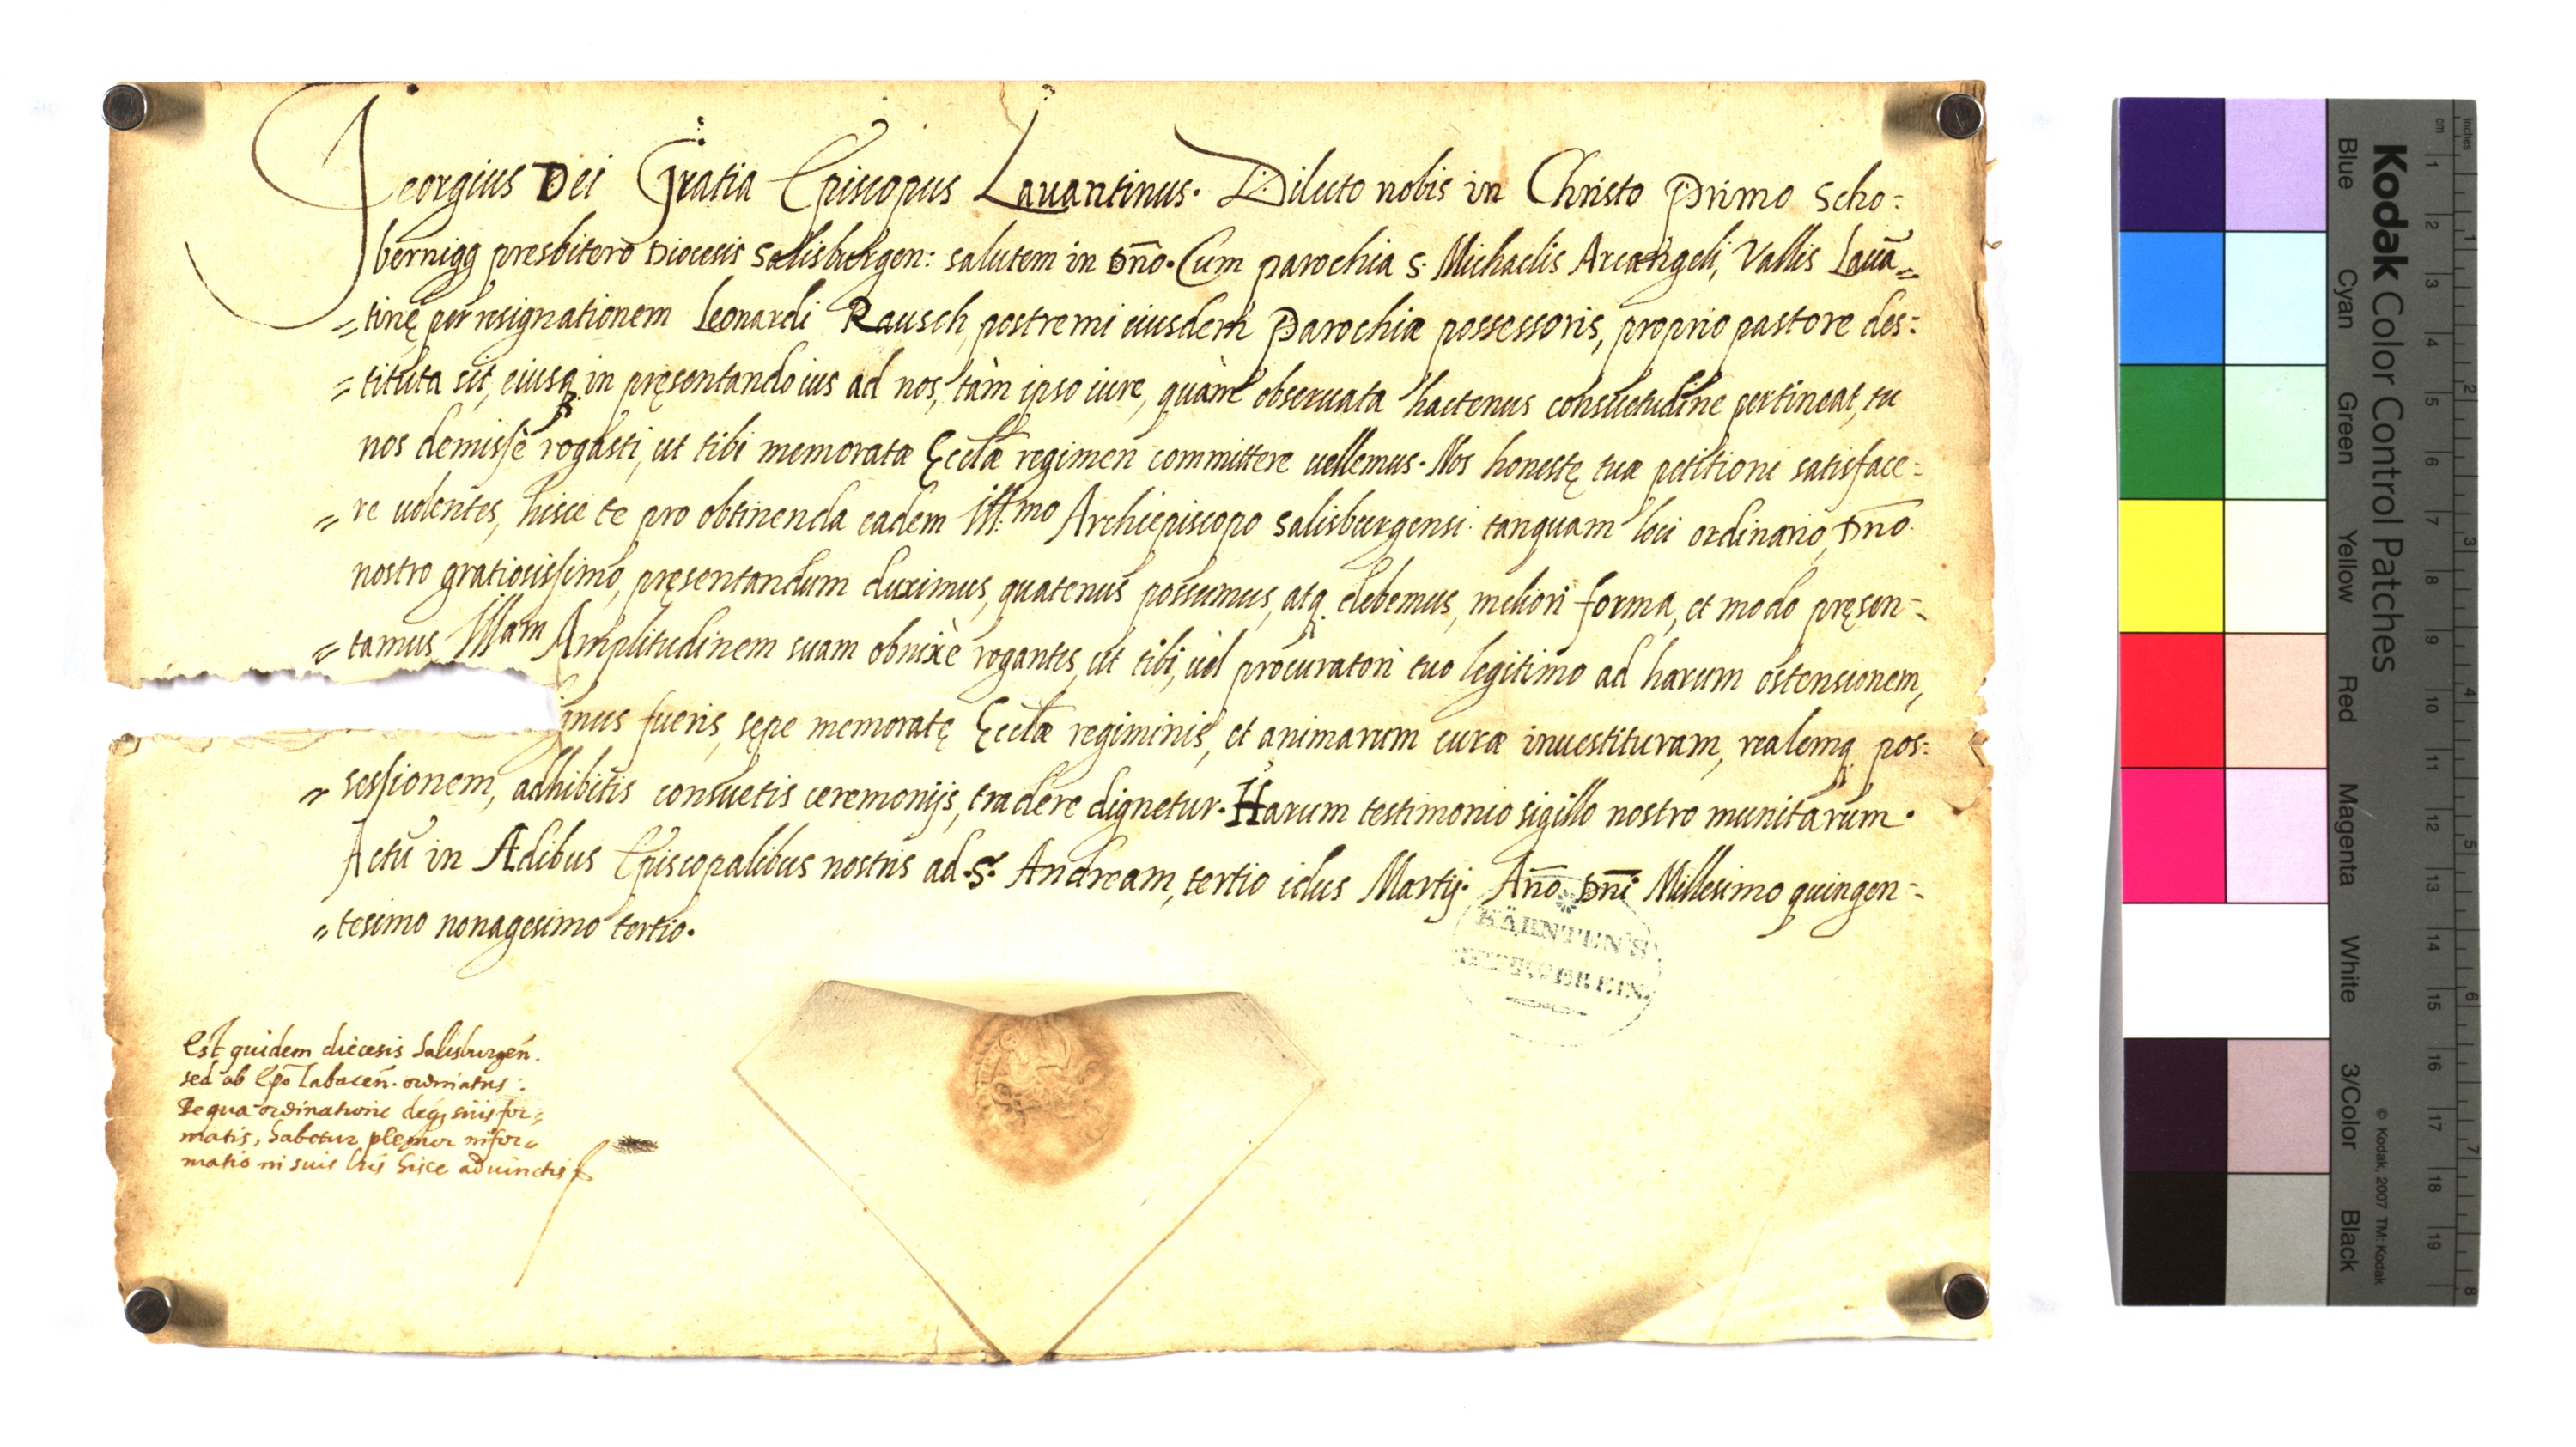 Georgius Dei Gratia Episcopus Lauantinus. Dilecto nobis in Christo Primo Scho:
bernigg presbitero Diocesis Salisburgen: salutem in Dn̄o. Cum parochia S. Michaelis Arcangeli, Vallis Lauā=
=tinę, per resignationem Leonardi Rausch, postremi eiusdem Parochiæ possessoris, proprio pastore des:
=tituta sit, eiusq. in pręsentando ius ad nos, tàm ipso iure, quàm obseruata hactenus consuetudine pertineat, tu
nos demissè rogasti, ut tibi memoratæ Ęccłæ regimen committere uellemus. Nos honestę tuæ petitioni satisface=
=re uolentes, hisce te pro obtinenda eadem Ill:mo Archiepiscopo Salisburgensi tanquam loci ordinario, Dn̄o
nostro gratiosissimo, pręsentandum duximus, quatenus possumus, atq. debemus, meliori forma, et modo pręsen=
=tamus, Illam Amplitudinem suam obnixè rogantes, ut tibi, uel procuratori tuo legitimo ad harum ostensionem,
fueris, sępe memoratę Ęccłæ regiminis, et animarum curæ inuestituram, realemq. pos:
=sessionem, adhibitis consuetis ceremonijs, tradere dignetur. Harum testimonio sigillo nostro munitarum.
Actū in Ædibus Episcopalibus nostris ad S. Andream, tertio idus Martij. An̄o Dn̄i Millesimo quingen=
=tesimo nonagesimo tertio.
KÄRNTEN'S
Est quidem diecesis Salisburgen̄.
sed ab Ep̄o Labacen̄. ordinatus:
De qua ordinatione deq3 suis for=
matis, habetur plenior infor=
matio in suis lris hisce aduinctis
Kodak Color Control Patches
Blue Cyan Green Yellow Red Magenta White 3/Color Black
© Kodak, 2007 TM: Kodak
cm 1 2 3 4 5 6 7 8 9 10 11 12 13 14 15 16 17 18 19
inches 1 2 3 4 5 6 7 8